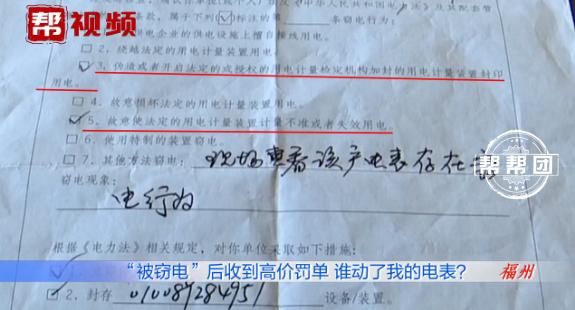 帮视频
条款，属于下列(√)标注的第 条窃电行为：
供电企业的供电设施上擅自接线用电。
□2、绕越法定的用电计量装置用电。
☑3、伪造或者开启法定的或授权的用电计量检定机构加封的用电计量装置封印
用电。
□4、故意损坏法定的用电计量装置用电。
☑5、故意使法定的用电计量装置计量不准或者失效用电。
□6、使用特制的装置窃电。
□7、其他方法窃电：现场查看该户电表存在
窃电现象：
电行为
帮帮团
根据《电力法》相关规定，对你单位采取如下措施：
“被窃电”后收到高价罚单 谁动了我的电表?
福州
☑2、封存 设备/装置。